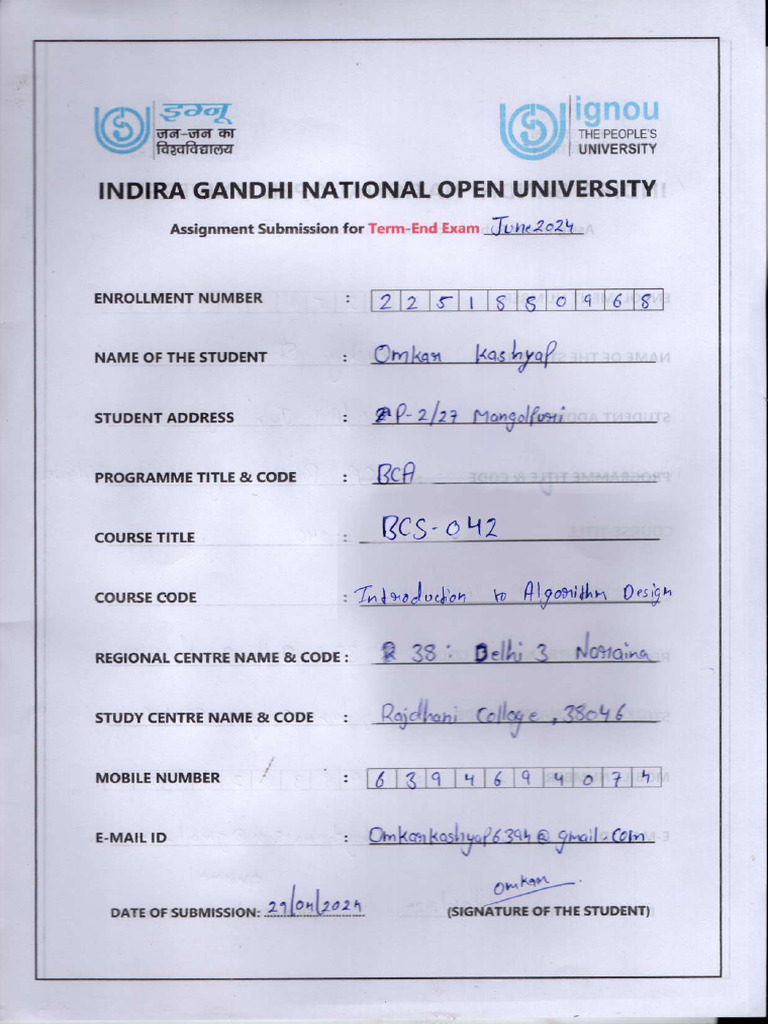 इग्नू
जन-जन का
विश्वविद्यालय
ignou
THE PEOPLE'S
UNIVERSITY
INDIRA GANDHI NATIONAL OPEN UNIVERSITY
Assignment Submission for Term-End Exam June 2024
ENROLLMENT NUMBER : 2251880968
NAME OF THE STUDENT : Omkar Kashyap
STUDENT ADDRESS : P-2/27 Mangolpuri
PROGRAMME TITLE & CODE : BCA
COURSE TITLE : BCS-042
COURSE CODE : Introduction to Algorithm Design
REGIONAL CENTRE NAME & CODE : 38: Delhi 3 Naraina
STUDY CENTRE NAME & CODE : Rajdhani College, 38046
MOBILE NUMBER : 6394694074
E-MAIL ID : Omkarkashyap6394@gmail.com
Omkar
DATE OF SUBMISSION: 29/04/2024 (SIGNATURE OF THE STUDENT)